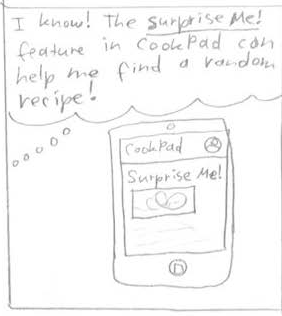 I know! The Surprise Me!
feature in CookPad can
help me find a random
recipe!
CookPad
Surprise Me!